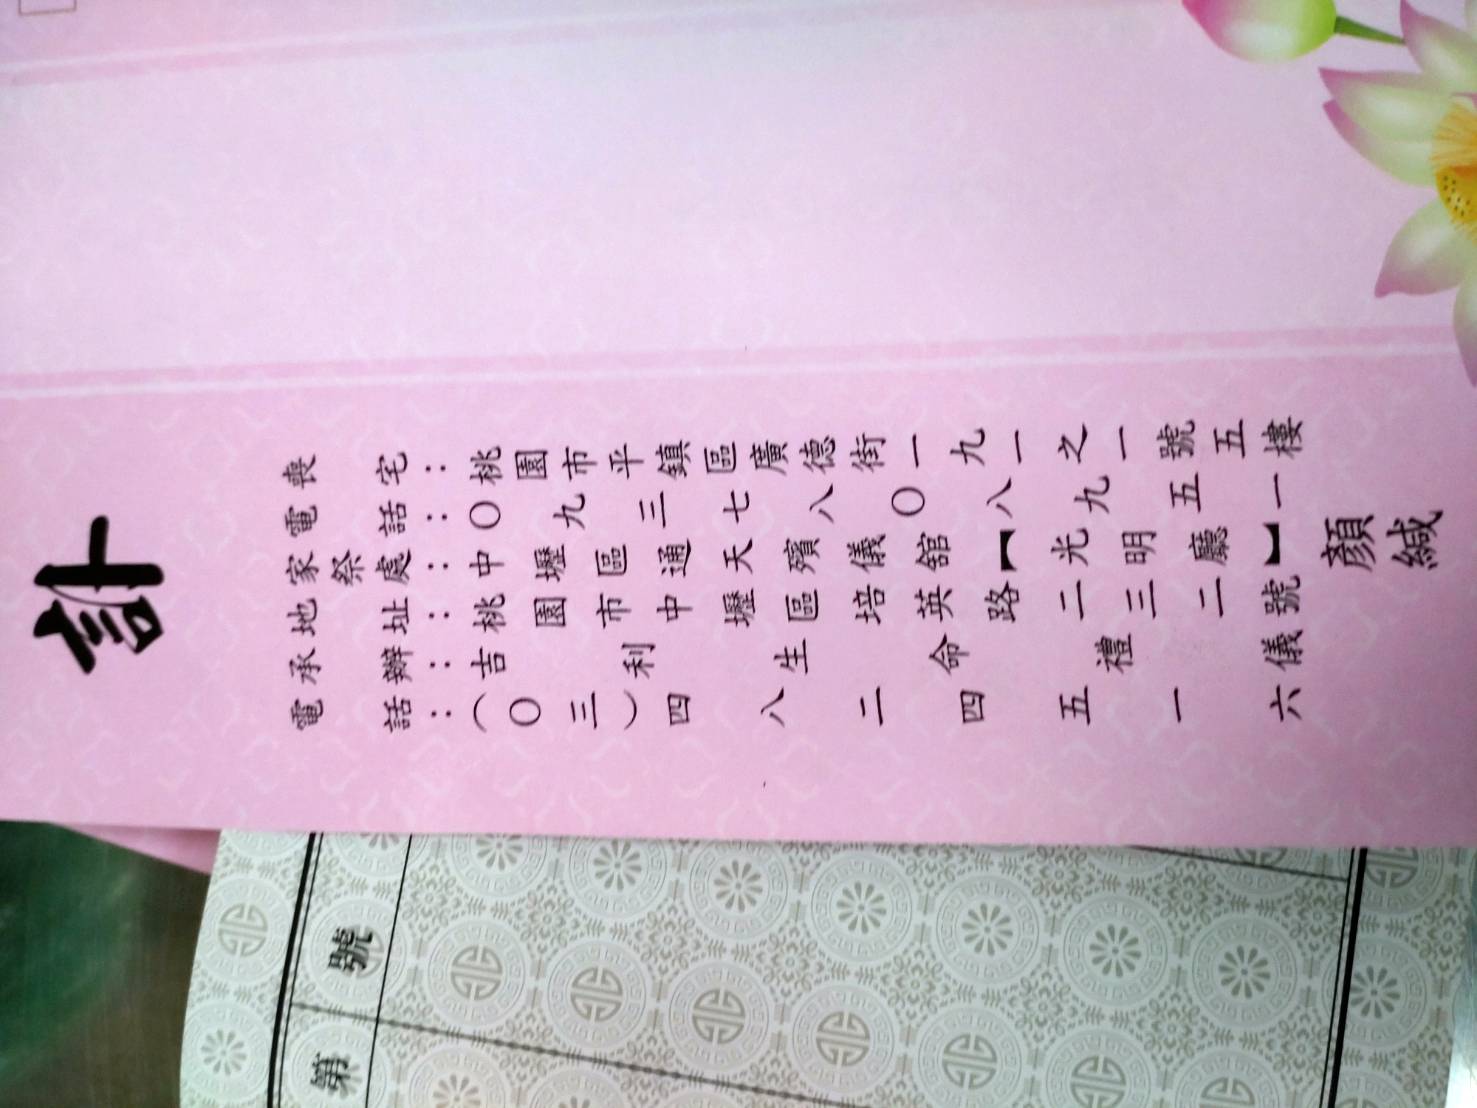 訃
喪宅：桃園市平鎮區廣德街一九一之一號五樓
電話：〇九三七八〇八九五一
家祭處：中壢區通天殯儀館【光明廳】
地址：桃園市中壢區培英路二三二號
承辦：吉利生命禮儀
電話：（〇三）四八二四五一六
顏緘
號
第